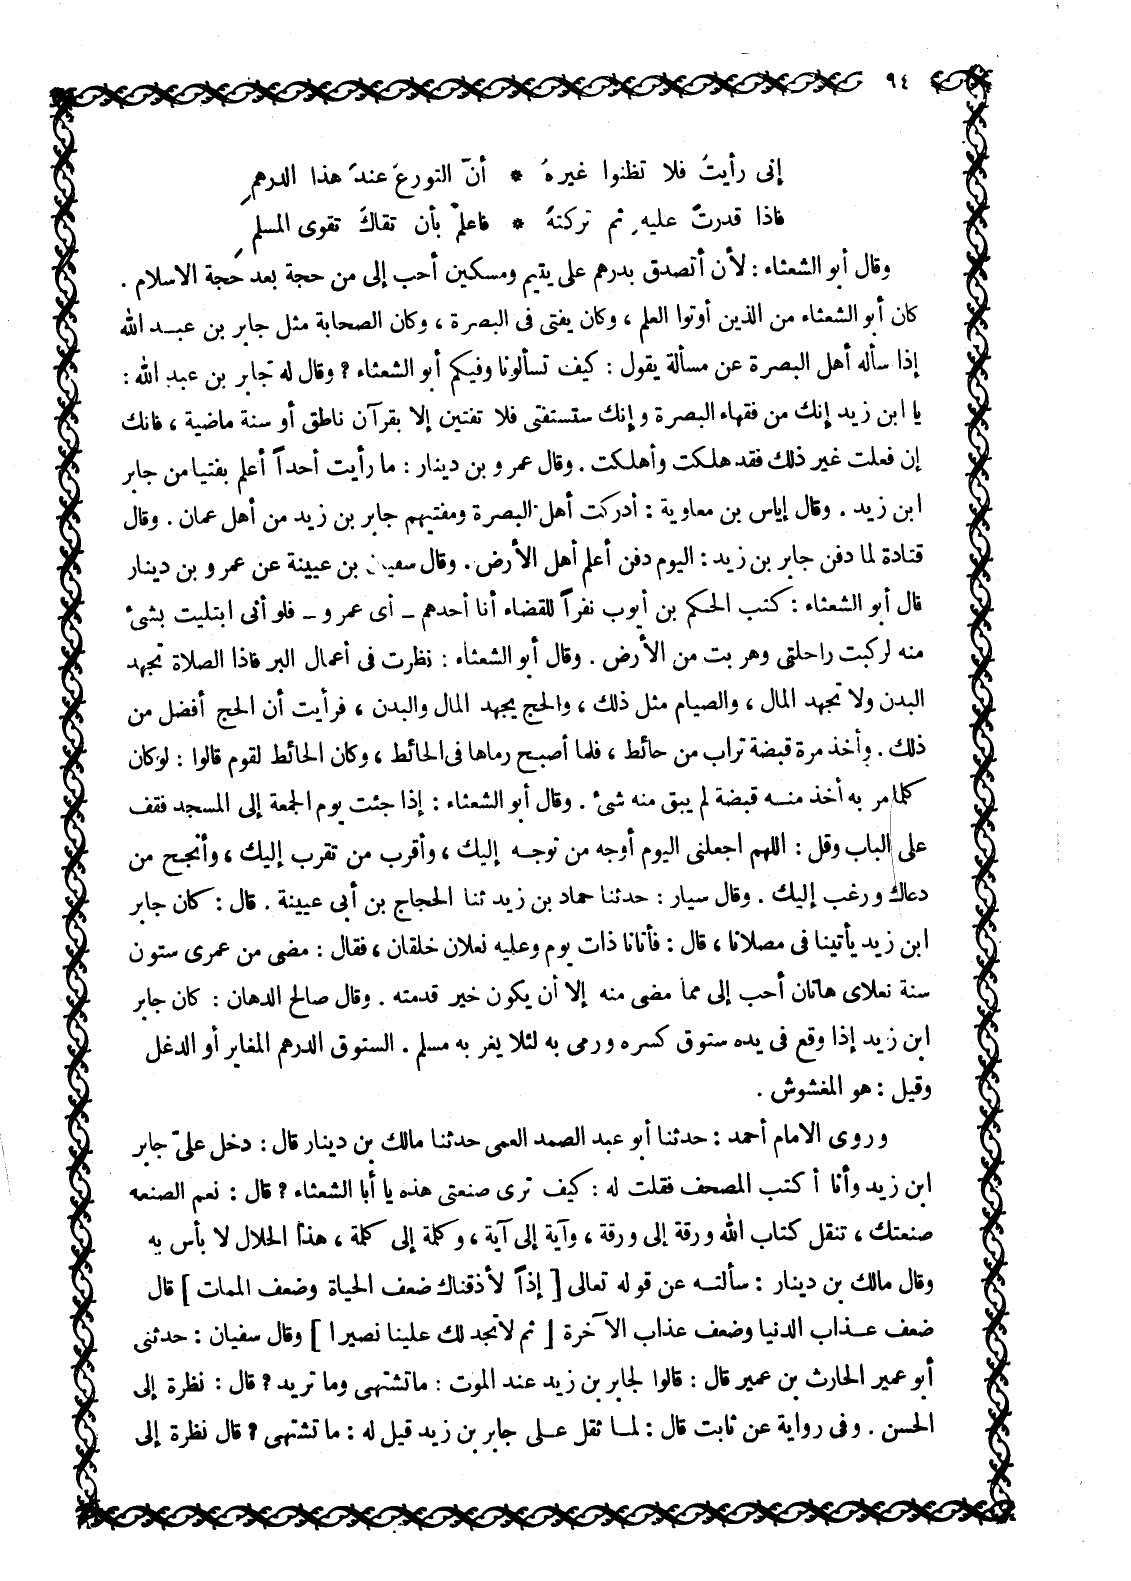 ٩٤
إنى رأيتُ فلا تظنوا غيرهُ * أنّ التورعَ عندَ هذا الدرهمِ
فاذا قدرتَ عليهِ ثم تركتهُ * فاعلمْ بأن تقاكَ تقوى المسلمِ
وقال أبو الشعثاء : لأن أتصدق بدرهم على يتيم ومسكين أحب إلى من حجة بعد حجة الاسلام .
كان أبو الشعثاء من الذين أوتوا العلم ، وكان يفتى فى البصرة ، وكان الصحابة مثل جابر بن عبد الله
إذا سأله أهل البصرة عن مسألة يقول : كيف تسألونا وفيكم أبو الشعثاء ؟ وقال له جابر بن عبد الله :
يا ابن زيد إنك من فقهاء البصرة وإنك ستستفتى فلا تفتين إلا بقرآن ناطق أو سنة ماضية ، فانك
إن فعلت غير ذلك فقد هلكت وأهلكت . وقال عمرو بن دينار : ما رأيت أحداً أعلم بفتيا من جابر
ابن زيد . وقال إياس بن معاوية : أدركت أهل البصرة ومفتيهم جابر بن زيد من أهل عمان . وقال
قتادة لما دفن جابر بن زيد : اليوم دفن أعلم أهل الأرض . وقال سفيان بن عيينة عن عمرو بن دينار
قال أبو الشعثاء : كتب الحكم بن أيوب نفراً للقضاء أنا أحدهم ـ أى عمرو ـ فلو أنى ابتليت بشىء
منه لركبت راحلتى وهربت من الأرض . وقال أبو الشعثاء : نظرت فى أعمال البر فاذا الصلاة تجهد
البدن ولا تجهد المال ، والصيام مثل ذلك ، والحج يجهد المال والبدن ، فرأيت أن الحج أفضل من
ذلك . وأخذ مرة قبضة تراب من حائط ، فلما أصبح رماها فى الحائط ، وكان الحائط لقوم قالوا : لو كان
كلما مر به أخذ منه قبضة لم يبق منه شىء . وقال أبو الشعثاء : إذا جئت يوم الجمعة إلى المسجد فقف
على الباب وقل : اللهم اجعلنى اليوم أوجه من توجه إليك ، وأقرب من تقرب إليك ، وأنجح من
دعاك ورغب إليك . وقال سيار : حدثنا حماد بن زيد ثنا الحجاج بن أبى عيينة . قال : كان جابر
ابن زيد يأتينا فى مصلانا ، قال : فأتانا ذات يوم وعليه نعلان خلقان ، فقال : مضى من عمرى ستون
سنة نعلاى هاتان أحب إلى مما مضى منه إلا أن يكون خير قدمته . وقال صالح الدهان : كان جابر
ابن زيد إذا وقع فى يده ستوق كسره ورمى به لئلا يغر به مسلم . الستوق الدرهم المغاير أو الدغل
وقيل : هو المغشوش .
وروى الامام أحمد : حدثنا أبو عبد الصمد العمى حدثنا مالك بن دينار قال : دخل علىّ جابر
ابن زيد وأنا أكتب المصحف فقلت له : كيف ترى صنعتى هذه يا أبا الشعثاء ؟ قال : نعم الصنعه
صنعتك ، تنقل كتاب الله ورقة إلى ورقة ، وآية إلى آية ، وكلمة إلى كلمة ، هذا الحلال لا بأس به
وقال مالك بن دينار : سألته عن قوله تعالى [ إذاً لأذقناك ضعف الحياة وضعف الممات ] قال
ضعف عذاب الدنيا وضعف عذاب الآخرة [ ثم لا تجد لك علينا نصيرا ] وقال سفيان : حدثنى
أبو عمير الحارث بن عمير قال : قالوا لجابر بن زيد عند الموت : ما تشتهى وما تريد ؟ قال : نظرة إلى
الحسن . وفى رواية عن ثابت قال : لما ثقل على جابر بن زيد قيل له : ما تشتهى ؟ قال نظرة إلى